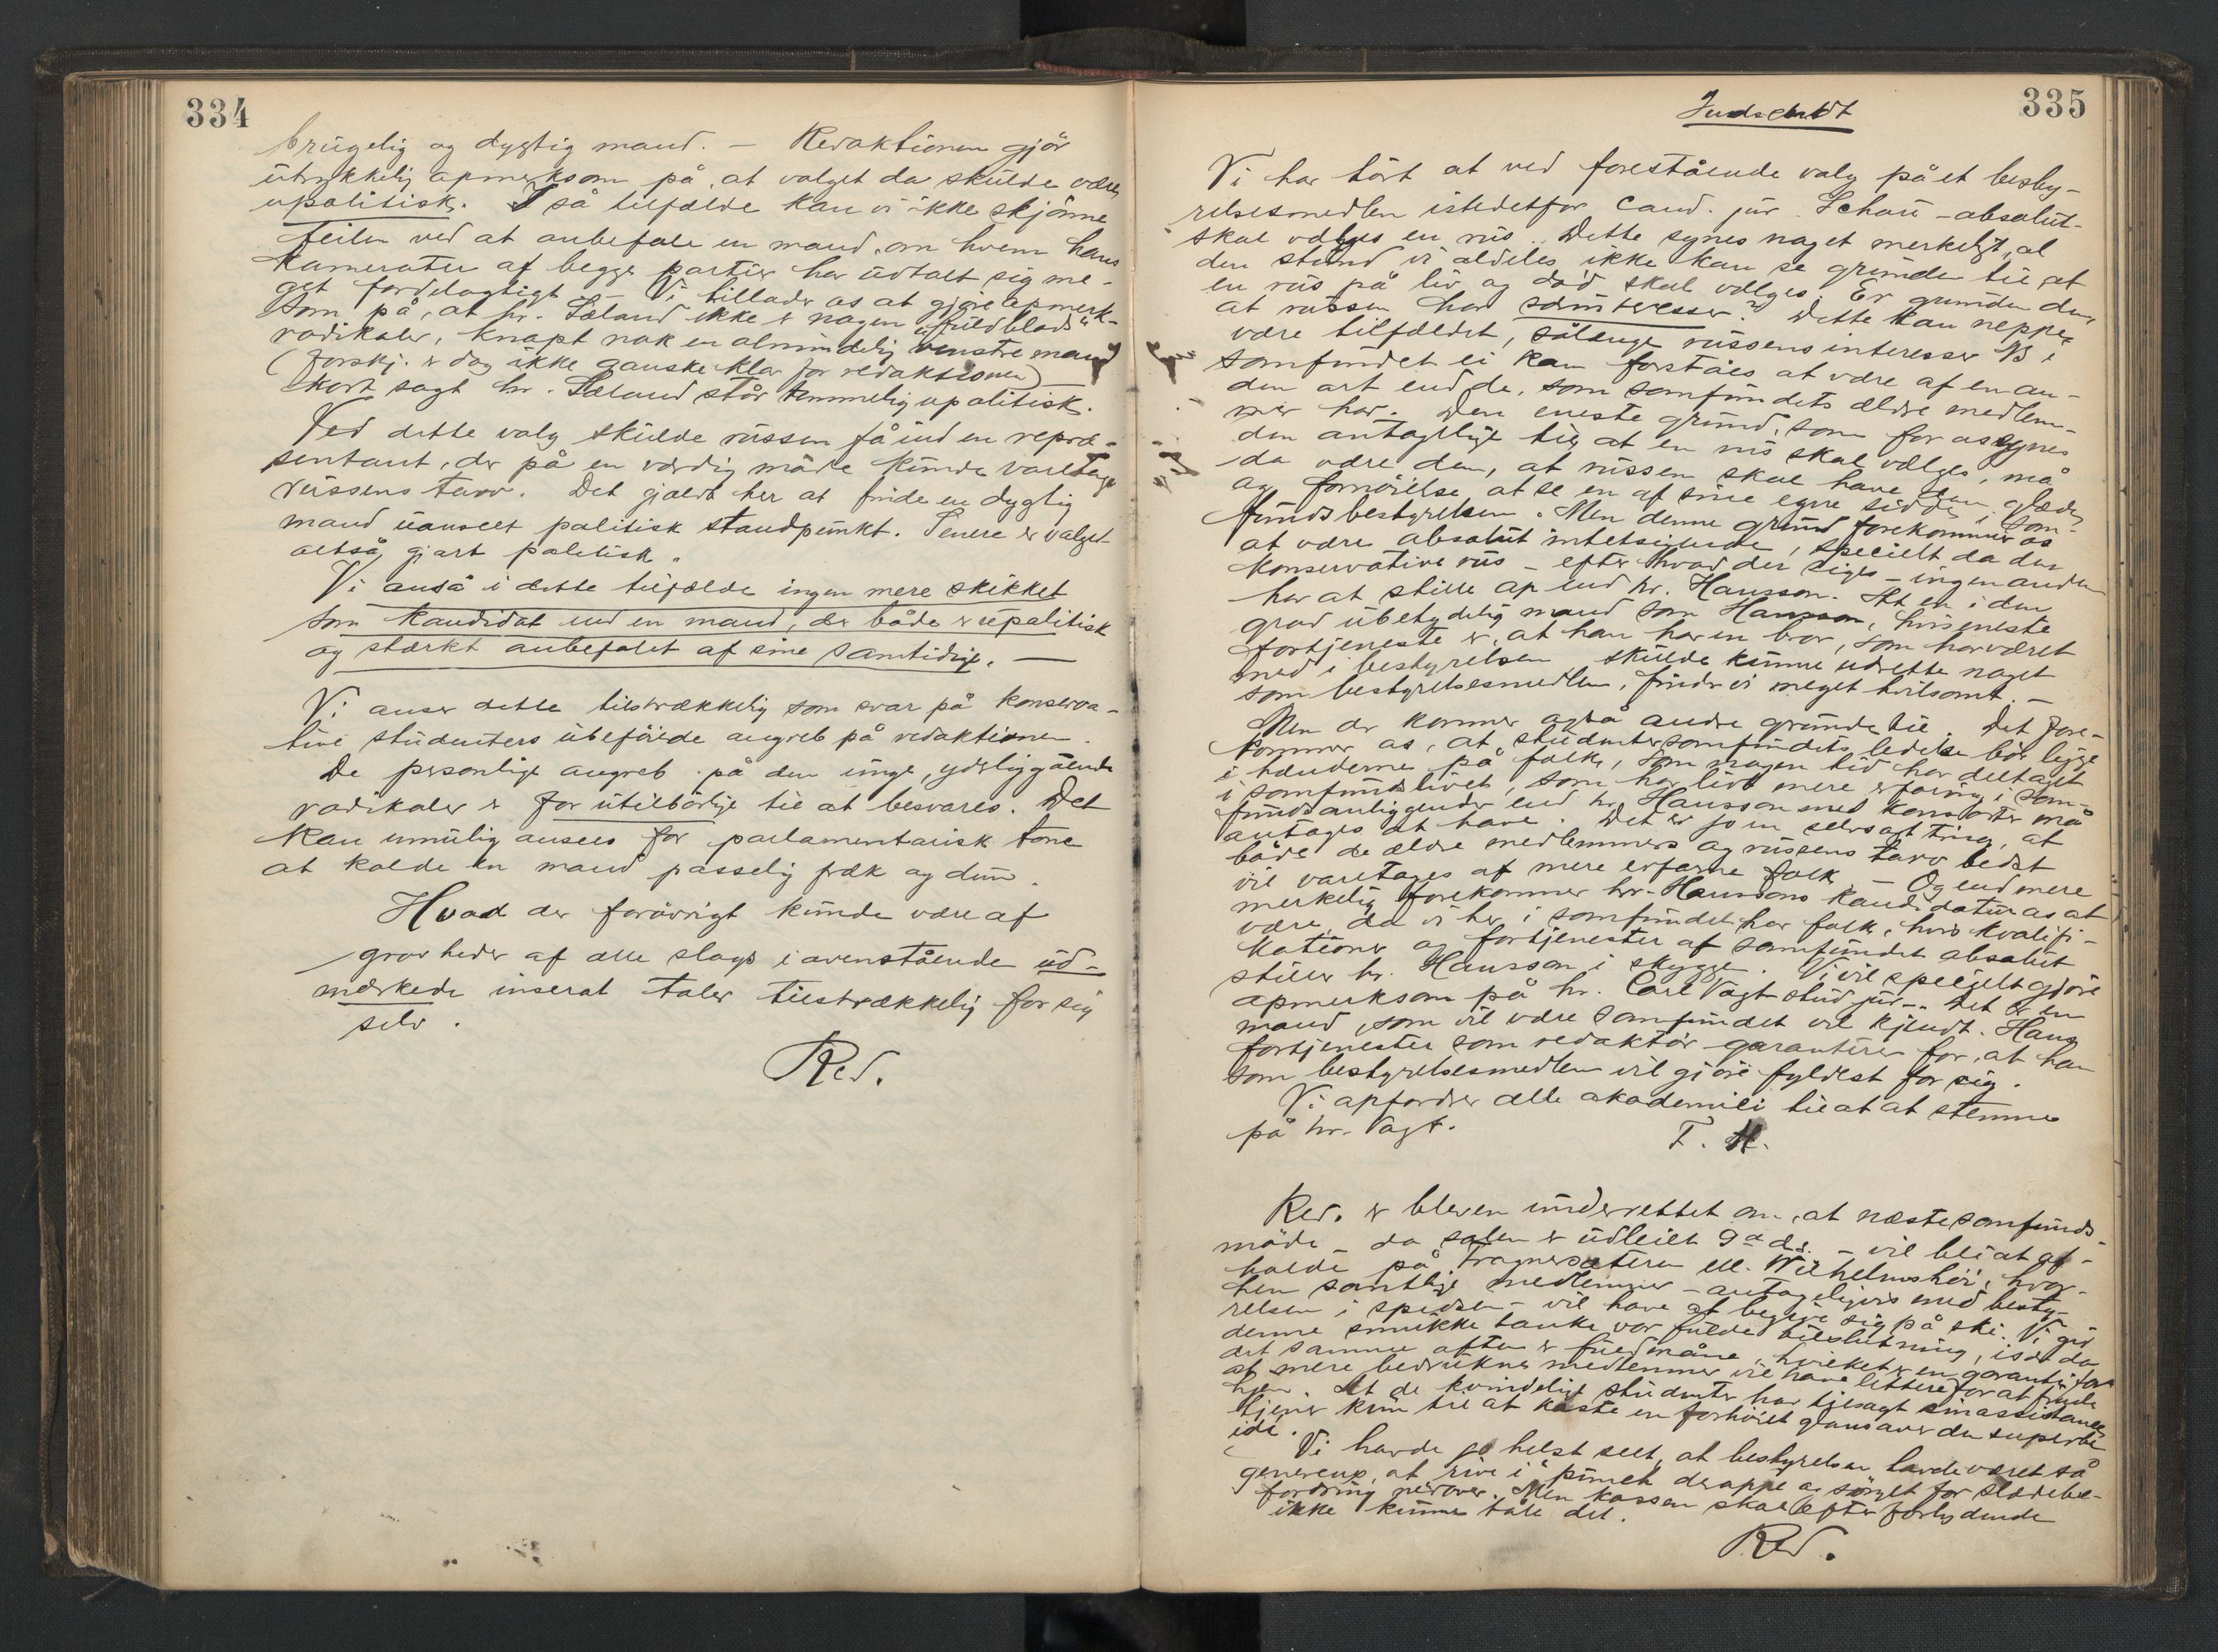 334
brugelig og dygtig mand. — Redaktionen gjör
utrykkelig opmerksom på, at valget da skulde være
upolitisk. I så tilfælde kan vi ikke skjönne
feilen ved at anbefale en mand, om hvem hans
kamerater af begge partier har udtalt sig me-
get fordelagtigt. — Vi tillader os at gjöre opmerk-
som på, at hr. Sæland ikke er nogen "fuldblods"
radikaler, knapt nok en almindelig venstremand
(forskj. er dog ikke ganske klar for redaktionen) —
kort sagt hr. Sæland står temmelig upolitisk.
Ved dette valg skulde russen få ind en repræ-
sentant, der på en værdig måde kunde varetage
russens tarv. Det gjældt her at finde en dygtig
mand uanseet politisk standpunkt. Senere er valget
altså gjort politisk.
Vi anså i dette tilfælde ingen mere skikket
som kandidat end en mand, der både er upolitisk
og stærkt anbefalet af sine samtidige. —
Vi anser dette tilstrækkelig som svar på konserva-
tive studenters ubeföiede angreb på redaktionen.
De personlige angreb på den unge, yderliggående
radikaler er for utilbörlige til at besvares. Det
kan umulig ansees for parlamentarisk tone
at kalde en mand passelig fræk og dum.
Hvad der forövrigt kunde være af
grovheder af alle slags i ovenstående ud-
merkede inserat taler tilstrækkelig for sig
selv.
Red.
335
Indsendt
Vi har hört at ved forestående valg på et besty-
relsesmedlem istedetfor cand. jur. Schou - absolut -
skal vælges en rus. Dette synes noget merkeligt, al
den stund vi aldeles ikke kan se grunden til, at
en rus på liv og död skal vælges. Er grunden den,
at russen har særinteresser? Dette kan neppe
være tilfældet, sålænge russens interesser i
samfundet ei kan forståes at være af en an-
den art end de, som samfundets ældre medlem-
mer har. Den eneste grund, som for os synes
den antagelige til, at en rus skal vælges, må
da være den, at russen skal have den glæde
og fornöielse at se en af sine egne sidde i sam-
fundsbestyrelsen. Men denne grund forekommer os
at være absolut intetsigende, specielt da den
konservative rus - efter hvad der siges - ingen anden
har at stille op end hr. Hansson. At en i den
grad ubetydelig mand som Hansson, hvis eneste
fortjeneste er, at han har en bror, som har været
med i bestyrelsen, skulde kunne udrette noget
som bestyrelsesmedlem, finder vi meget tvilsomt. —
Men der kommer også andre grunde til. Det fore-
kommer os, at studentersamfundets ledelse bör ligge
i hænderne på folk, som nogen tid har deltaget
i samfundslivet, som har lidt mere erfaring i sam-
fundsanliggender end hr. Hansson med konsorter må
antages at have. Det er jo en selvsagt ting, at
både de ældre medlemmers og russens tarv bedst
vil varetages af mere erfarne folk. — Og end mere
merkelig forekommer hr. Hanssons kandidatur os at
være, da vi her i samfundet har folk, hvis kvalifi-
kationer og fortjenester af samfundet absolut
stiller hr. Hansson i skygge. Vi vil specielt gjöre
opmerksom på hr. Carl Vogt stud. jur. — Det er en
mand, som vil være samfundet vel kjendt. Hans
fortjenester som redaktör garanterer for, at han
som bestyrelsesmedlem vil gjöre fyldest for sig.
Vi opfordrer alle akademici til at at stemme
på hr. Vogt.
T. H.
Red. er bleven underrettet om, at næste samfunds-
möde - da salen er udleiet 9de ds. - vil bli at af-
holde på Frognersæteren ell. Wilhelmshöi, hvor-
hen samtlige medlemmer - antageligvis med besty-
relsen i spidsen - vil have at begive sig på ski. Vi gir
denne smukke tanke vor fulde tilslutning, især da
det samme aften er fuldmåne, hvilket er en garanti for
at mere bedrukne medlemmer vil have lettere for at finde
hjem. At de kvindelige studenter har tilsagt sin assistance
tjener kun til at kaste en forhöiet glans over den superbe
idé.
Vi havde jo helst seet, at bestyrelsen havde været så
genereus, at rive i punch drappe og sörget for slædebe-
fordring nedover. Men kassen skal efter forlydende
ikke kunne tåle det.
Red.